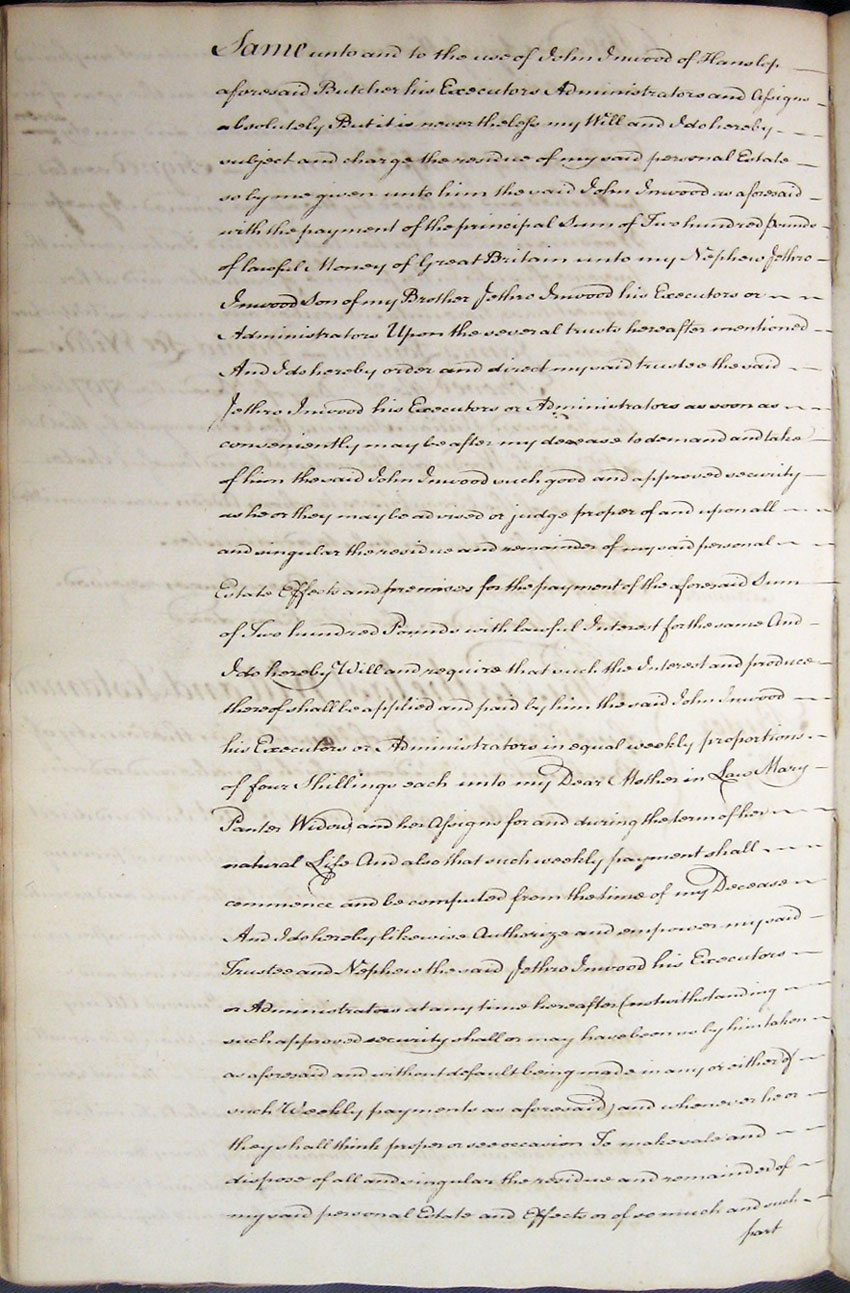 Same unto and to the use of John Inwood of Hanslop
aforesaid Butcher his Executors Administrators and Assigns
absolutely But it is nevertheless my Will and I do hereby
subject and charge the residue of my said personal Estate
so by me given unto him the said John Inwood as aforesaid
with the payment of the principal Sum of Two hundred pounds
of lawful Money of Great Britain unto my Nephew Jethro
Inwood Son of my Brother Jethro Inwood his Executors or
Administrators Upon the several trusts hereafter mentioned
And I do hereby order and direct my said trustee the said
Jethro Inwood his Executors or Administrators as soon as
conveniently may be after my decease to demand and take
of him the said John Inwood such good and approved security
as he or they may be advised or judge proper of and upon all
and singular the residue and remainder of my said personal
Estate Effects and premises for the payment of the aforesaid Sum
of Two hundred Pounds with lawful Interest for the same And
I do hereby Will and require that such the Interest and produce
thereof shall be applied and paid by him the said John Inwood
his Executors or Administrators in equal weekly proportions
of four Shillings each unto my Dear Mother in Law Mary
Panter Widow and her Assigns for and during the term of her
natural Life And also that such weekly payment shall
commence and be computed from the time of my Decease
And I do hereby likewise Authorize and empower my said
Trustee and Nephew the said Jethro Inwood his Executors
or Administrators at any time hereafter (notwithstanding
such approved security shall or may have been so by him taken
as aforesaid and without default being made in any or either of
such Weekly payments as aforesaid) and whenever he or
they shall think proper or see occasion To make sale and
dispose of all and singular the residue and remainder of
my said personal Estate and Effects or of so much and such
part